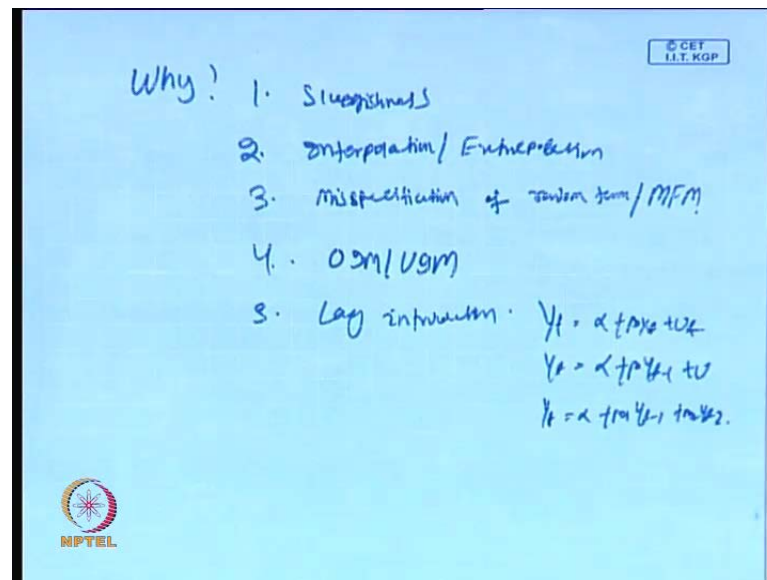 © CET
I.I.T. KGP
Why? 1. Sluggishness
2. Interpolation / Extrapolation
3. Misspecification of random term / MFM
4. OIM / UIM
5. Lag introduction. Yt = α + βXt + Ut
Yt = α + βYt-1 + U
Yt = α + β1 Yt-1 + β2 Yt-2.
NPTEL